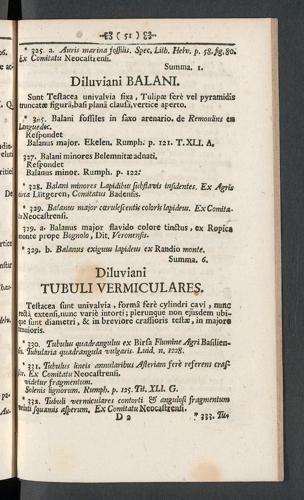 ( 51 )
* 325. a. Auris marina fossilis. Spec. Lith. Helv. p. 58. fig. 80.
Ex Comitatu Neocastrensi.
Summa. 1.
Diluviani BALANI.
Sunt Testacea univalvia fixa, Tulipæ ferè vel pyramidis
truncatæ figurâ, basi planâ clausâ, vertice aperto.
* 326. Balani fossiles in saxo arenario. de Remoulins en
Languedoc.
Respondet
Balanus major. Ekelen. Rumph. p. 121. T. XLI. A.
327. Balani minores Belemnitæ adnati.
Respondet
Balanus minor. Rumph. p. 122.
* 328. Balani minores Lapidibus subflavis insidentes. Ex Agris
circa Lütgeren, Comitatus Badensis.
* 329. Balanus major cærulescentis coloris lapideus. Ex Comita-
tu Neocastrensi.
329. a Balanus major flavido colore tinctus, ex Ropica
monte prope Bagnolo, Dit. Veronensis.
* 329. b. Balanus exiguus lapideus ex Randio monte.
Summa. 6.
Diluviani
TUBULI VERMICULARES.
Testacea sunt univalvia, formâ ferè cylindri cavi, nunc
rectà extensi, nunc variè intorti; plerunque non ejusdem ubi-
que sunt diametri, & in breviore crassioris testæ, in majore
tenuioris.
* 330. Tubulus quadrangulus ex Birsa Flumine Agri Basilien-
sis. Tubularia quadrangula vulgaris. Luid. n. 1228.
* 331. Tubulus lineis annularibus Asteriam ferè referens cras-
sior. Ex Comitatu Neocastrensi.
videtur fragmentum.
Solenis lignorum. Rumph. p. 125. Tit. XLI. G.
* 332. Tubuli vermiculares contorti & angulosi fragmentum
veluti squamis asperum. Ex Comitatu Neocastrensi.
D 2
* 333. Tu-